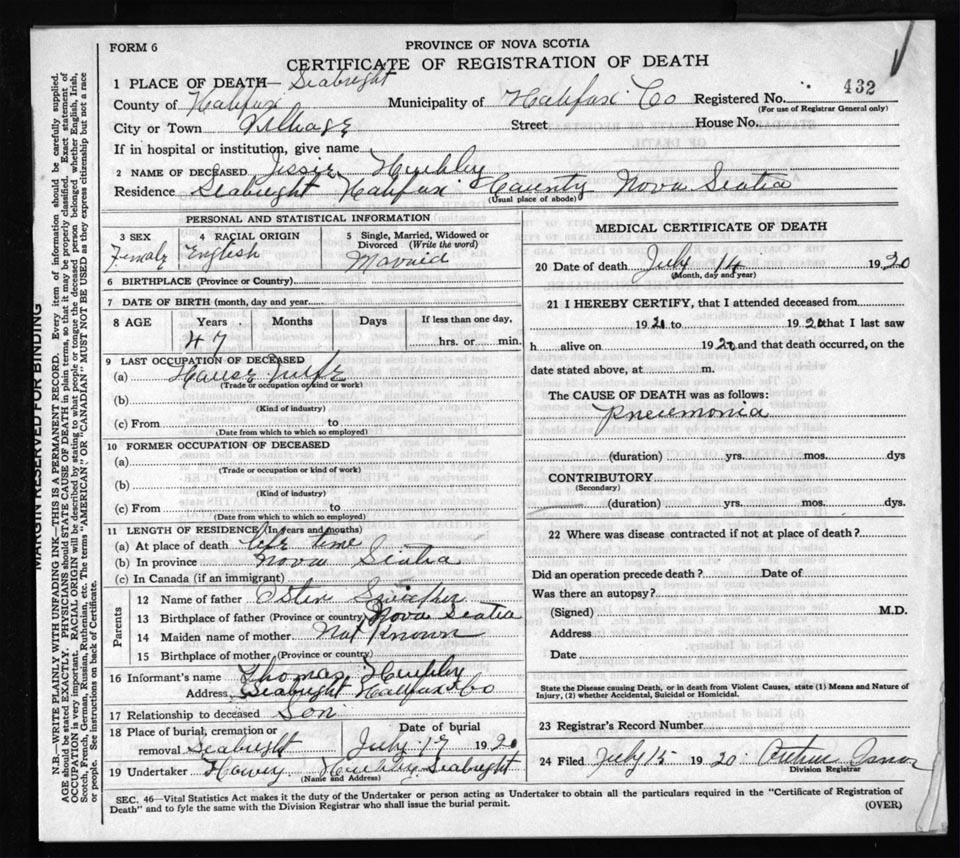 FORM 6
PROVINCE OF NOVA SCOTIA
CERTIFICATE OF REGISTRATION OF DEATH
1 PLACE OF DEATH— Seabright
County of Halifax Municipality of Halifax Co Registered No. 432
(For use of Registrar General only)
City or Town Village Street House No.
If in hospital or institution, give name
2 NAME OF DECEASED Jessie
Residence Seabright Halifax County Nova Scotia
(Usual place of abode)
PERSONAL AND STATISTICAL INFORMATION
3 SEX 4 RACIAL ORIGIN 5 Single, Married, Widowed or Divorced (Write the word)
Female English
6 BIRTHPLACE (Province or Country)
7 DATE OF BIRTH (month, day and year)
8 AGE Years Months Days If less than one day,
47 hrs. or min.
9 LAST OCCUPATION OF DECEASED
(a) House Wife
(Trade or occupation or kind or work)
(b)
(Kind of industry)
(c) From to
(Date from which to which so employed)
10 FORMER OCCUPATION OF DECEASED
(a)
(Trade or occupation or kind of work)
(b)
(Kind of industry)
(c) From to
(Date from which to which so employed)
11 LENGTH OF RESIDENCE (In years and months)
(a) At place of death life time
(b) In province Nova Scotia
(c) In Canada (if an immigrant)
Parents
12 Name of father
13 Birthplace of father (Province or country) Nova Scotia
14 Maiden name of mother Not Known
15 Birthplace of mother (Province or country)
16 Informant's name Thomas
Address Seabright Halifax Co
17 Relationship to deceased Son
18 Place of burial, cremation or Date of burial
removal Seabright July 17 1920
19 Undertaker Seabright
(Name and Address)
MEDICAL CERTIFICATE OF DEATH
20 Date of death July 14 1920
(Month, day and year)
21 I HEREBY CERTIFY, that I attended deceased from
1920 to 1920 that I last saw
h alive on 1920 and that death occurred, on the
date stated above, at m.
The CAUSE OF DEATH was as follows:
Pneumonia
(duration) yrs. mos. dys
CONTRIBUTORY
(Secondary)
(duration) yrs. mos. dys.
22 Where was disease contracted if not at place of death?
Did an operation precede death? Date of
Was there an autopsy?
(Signed) M.D.
Address
Date
State the Disease causing Death, or in death from Violent Causes, state (1) Means and Nature of
Injury, (2) whether Accidental, Suicidal or Homicidal.
23 Registrar's Record Number
24 Filed July 15 1920
Division Registrar
SEC. 46—Vital Statistics Act makes it the duty of the Undertaker or person acting as Undertaker to obtain all the particulars required in the "Certificate of Registration of
Death" and to fyle the same with the Division Registrar who shall issue the burial permit.
(OVER)
MARGIN RESERVED FOR BINDING
N.B.—WRITE PLAINLY WITH UNFADING INK—THIS IS A PERMANENT RECORD. Every item of information should be carefully supplied.
AGE should be stated EXACTLY. PHYSICIANS should STATE CAUSE OF DEATH in plain terms, so that it may be properly classified. Exact statement of
OCCUPATION is very important. RACIAL ORIGIN will be described by stating to what people or tongue the deceased person belonged whether English, Irish,
Scotch, French, German, Russian, Ruthenian, etc. The terms "AMERICAN" OR "CANADIAN" MUST NOT BE USED as they express citizenship but not a race
or people. See instructions on back of Certificate.